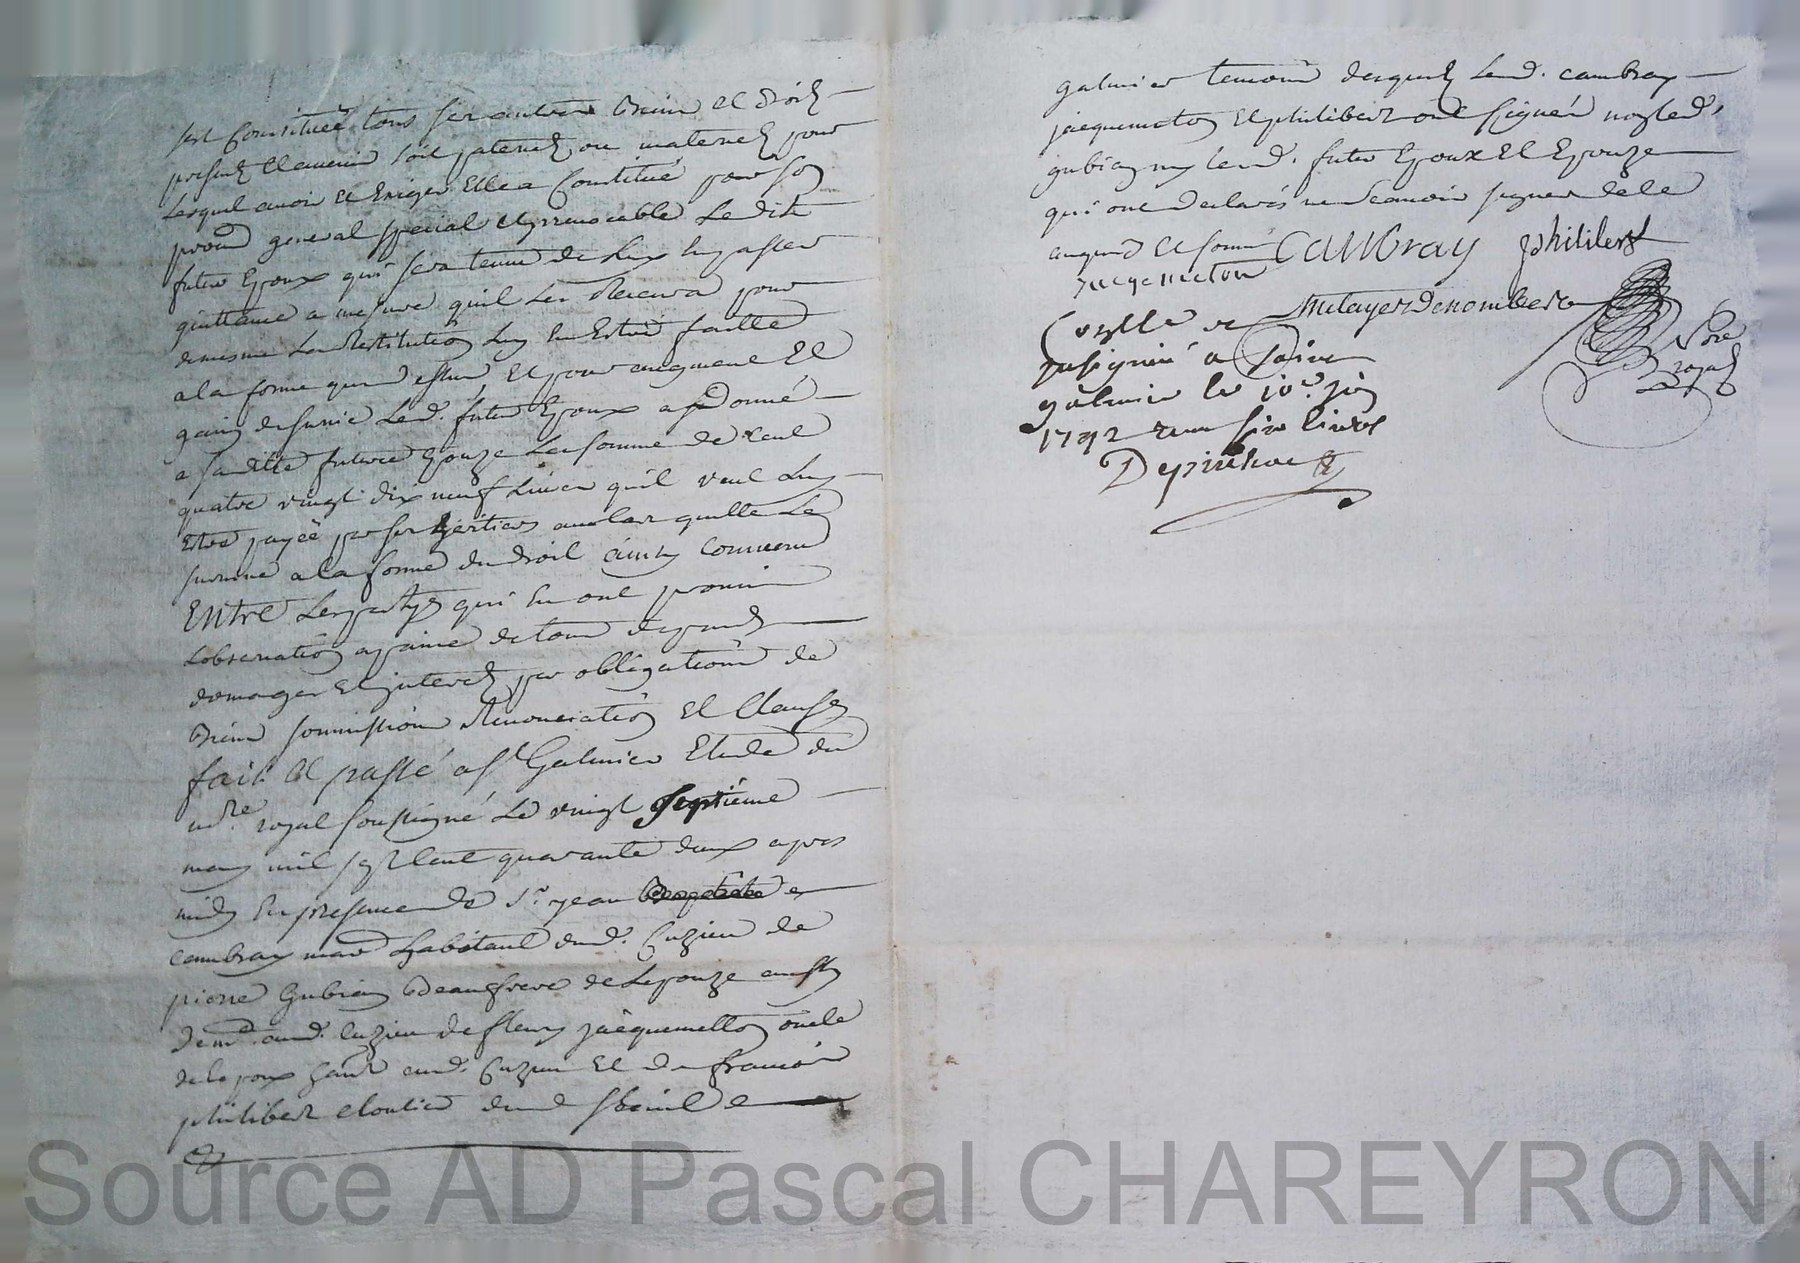 sest Constituée tous ses autres Biens et droits
presents et avenir soit paternels ou maternels pour
lesquels avoir et Exiger Elle a Constitué pour son
procur general special et irrevocable Ledit
futur Epoux qui sera tenu de luy en passer
quittance a mesure quil les Recevra pour
de mesme La Restitution luy En Estre faitte
a la forme que dessus Et pour augment Et
gain de survie Led. futur Epoux a donné
a saditte future Epouze La somme de Cent
quatre vingt dix neuf Livres quil veut luy
Estre payée par ses heritiers au cas quelle Le
survive a la forme du droit ainsy Convenu
Entre Les partyes qui En ont promis
Lobservation a paine de tous depends
domages Et interets par obligations de
Biens soumissions Renonciation Et Clauses
fait Et passé a St Galmier Etude du
nore royal soussigné Le vingt septieme
may mil sept Cent quarante deux apres
midy En presence de Sr jean
cambray mard habitant dud. Cuzieu de
pierre Gubian Beaufrere de Lepouze aussy
dem.t aud. Cuzieu de fleury jacquemetton oncle
de lepoux aud. Cuzieu Et de francois
philibert cloutier dud St
Galmier temoins desquels Lesd. cambray
jacquemeton Et philibert ont signés non led.
gubian ny Lesd. futur Epoux Et Epouze
qui ont declarés ne scavoir signer de ce
enquis Et sommés Cambray philibert
Jacquemeton
Metayer Denombert
Nore
royal
Conttrolle et
insignué a Saint
galmier le 10e juin
1742 Receu six livres
Depinhac